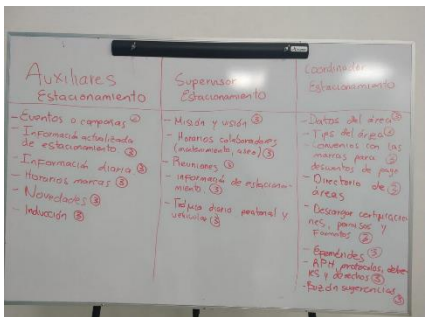 Auxiliares
Estacionamiento
- Eventos o campañas ②
- Información actualizada
de estacionamiento ③
- Información diaria ③
- Horarios marcas ③
- Novedades ③
- Inducción ③
Supervisor
Estacionamiento
- Misión y visión ③
- Horarios colaboradores
(mantenimiento, aseo) ③
- Reuniones ③
- información de estaciona-
miento. ③
diario peatonal y
vehicular ③
Coordinador
Estacionamiento
- Datos del área ③
- Tips del área ②
- Convenios con las
marcas para ②
descuentos de pago
- Directorio de ②
áreas
- Descargue
nes, permisos y
Formatos ②
- Efemérides ③
- APH, protocolos, debe-
res y derechos ③
- Buzón sugerencias ③